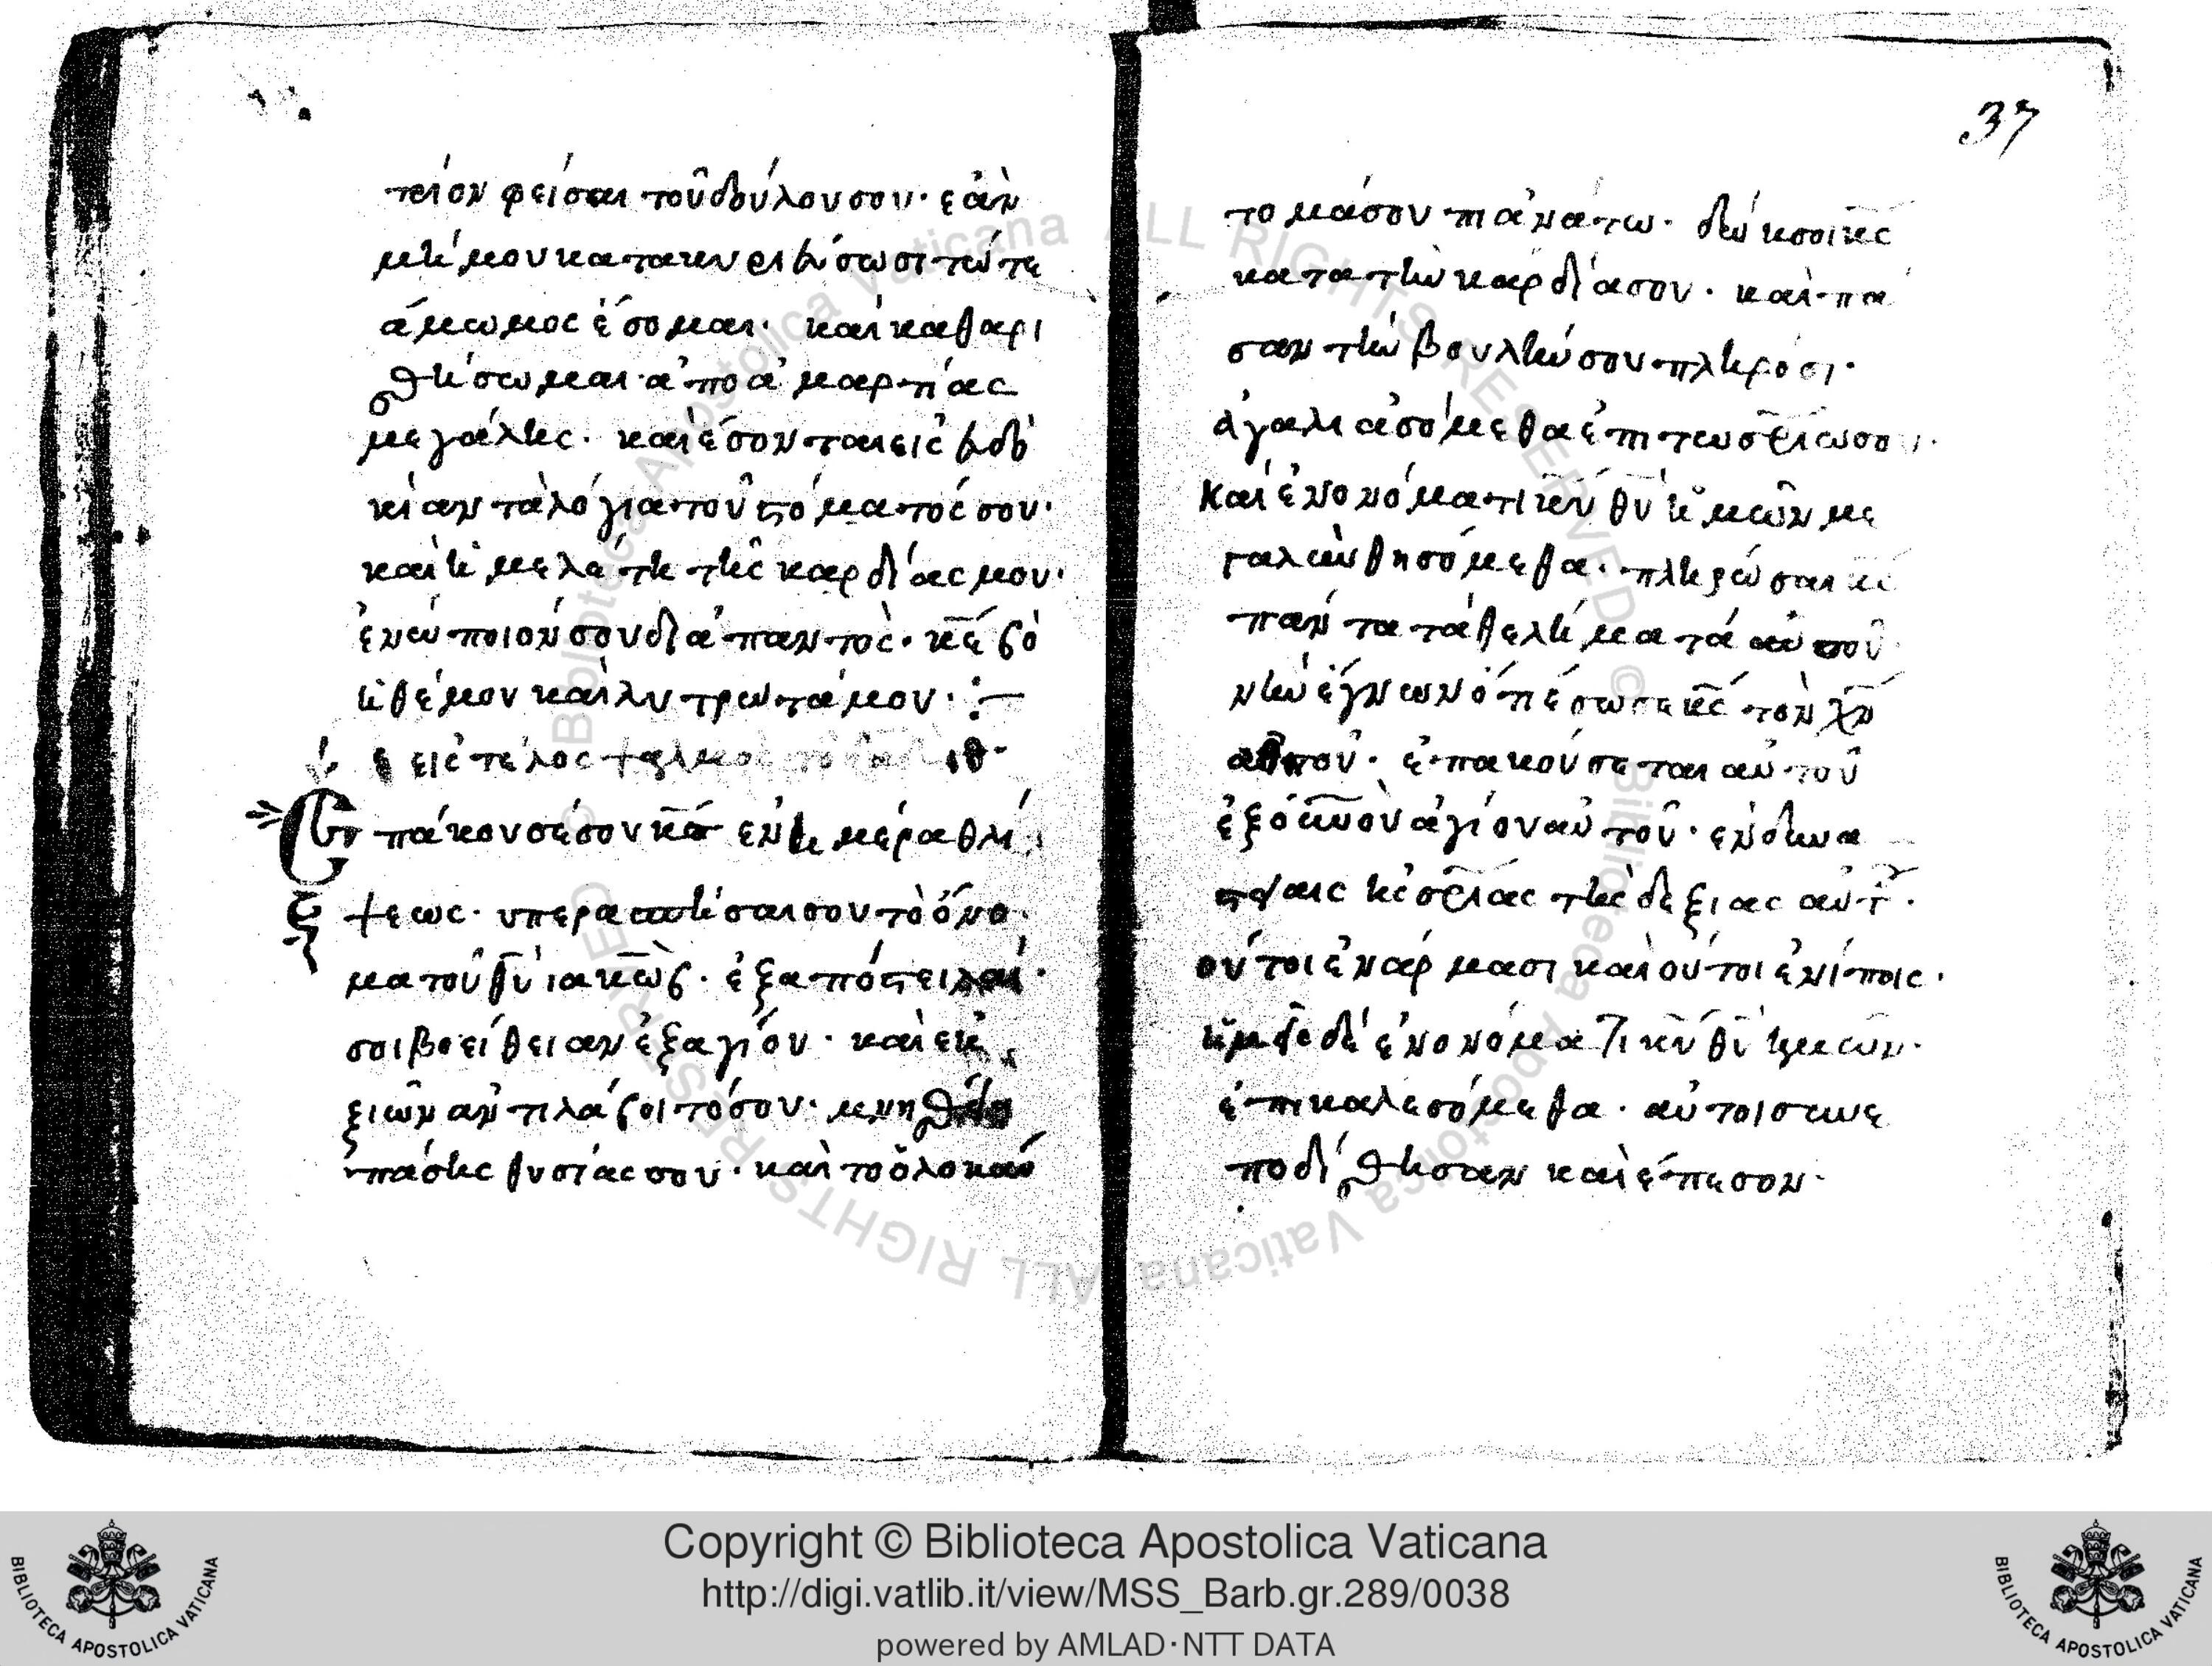 τρίον φείσαι τοῦ δούλου σου· ἐὰν
μή μου κατακυριεύσωσι τώτε
ἄμωμος ἔσομαι· καὶ καθαρι
σθήσωμαι ἀπο ἁμαρτίας
μεγάλης· καὶ ἔσονται εἰς εὐδο
κίαν τὰ λόγια τοῦ στόματός σου·
καὶ ἡ μελέτη τῆς καρδίας μου·
ἐνώποιόν σου διάπαντὸς· κ̅ε̅ βο
ηθέ μου καὶ λυτρωτά μου·:—
εἰς τέλος ψαλμος τῶ ιθ·
Ἐπάκουσέ σου κ̅ς̅ εν ἡμέρα θλί
ψεως· υπερασπήσαι σου τὸ ὄνο
μα τοῦ θ̅υ̅ ιακὼβ· ἐξαπόστειλαι
σοι βοείθειαν ἐξ αγίου· καὶ εκ
σιὼν αντιλάβοιτό σου· μνησθείη
πάσης θυσίας σου· καὶ το ὁλοκαύ
37
το μάσου πιανάτω· δώη σοι κ̅ς̅
κατα τὴν καρδίασου· και πα
σαν τὴν βουλήν σου πληρόσι·
ἀγαλιασόμεθα ἐπι τω σ̅ρ̅ιω σου·
Και ἐν ονόματι κ̅υ̅ θ̅υ̅ ἡμῶν με
γαλυνθησόμεθα· πληρώσαι κ̅ς̅
πάντα τὰ θελήματά αὐτοῦ·
νῦν ἔγνων ὅτι έσωσε κ̅ς̅ τὸν χ̅ν̅
αὐτοῦ· ἐπακούσεται αὐτοῦ
ἐξ ὀυ̅ν̅οὺ ἁγίου αὐτοῦ· εν δυνα
στείαις ἡ σ̅ρ̅ιας τῆς δεξιας αὐτ̅·
οὗτοι ἐν άρμασι και οὗτοι ἐν ίποις·
ἡμεῖς δὲ ἐν ονόματι κ̅υ̅ θ̅υ̅ ἡμων·
ἐπικαλεσόμεθα· αὐτοι συνε
ποδίσθησαν καὶ έπεσον·
Copyright © Biblioteca Apostolica Vaticana
http://digi.vatlib.it/view/MSS_Barb.gr.289/0038
powered by AMLAD·NTT DATA
BIBLIOTECA APOSTOLICA VATICANA
BIBLIOTECA APOSTOLICA VATICANA